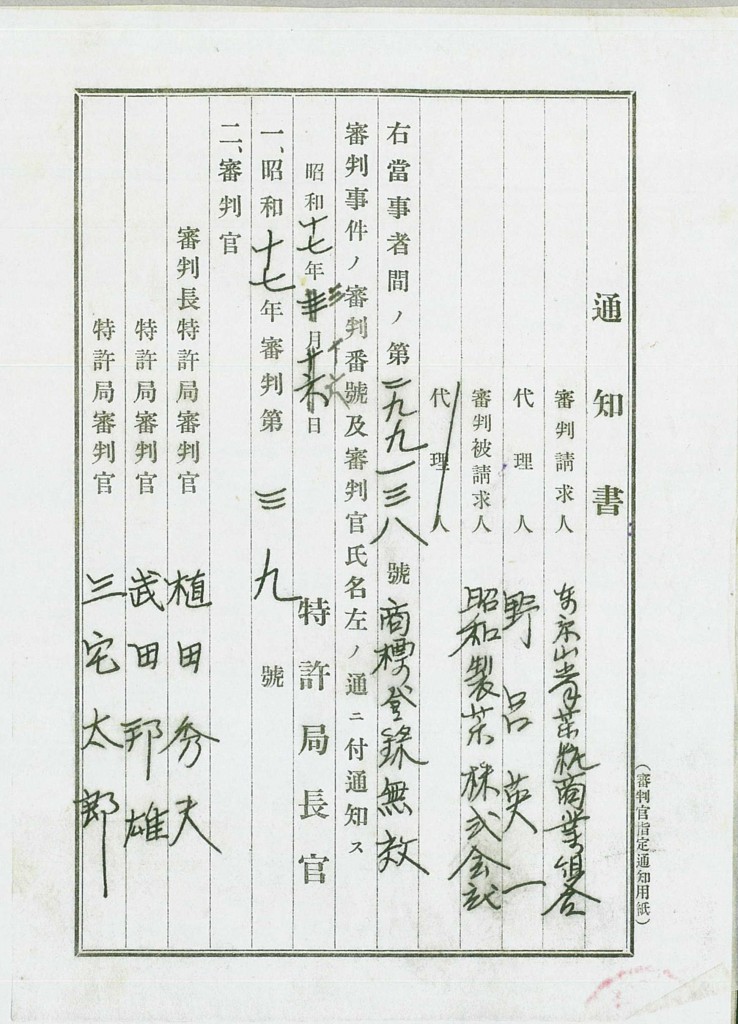 (審判官指定通知用紙)
通知書
審判請求人 東京 商業組合
代理人 野呂英一
審判被請求人 昭和製茶株式会社
代理人
右當事者間ノ第二九九一三八號商標登録無效
審判事件ノ審判番號及審判官氏名左ノ通ニ付通知ス
昭和十七年三月十六日 特許局長官
一、昭和十七年審判第三九號
二、審判官
審判長特許局審判官 植田秀夫
特許局審判官 武田邦雄
特許局審判官 三宅太郎